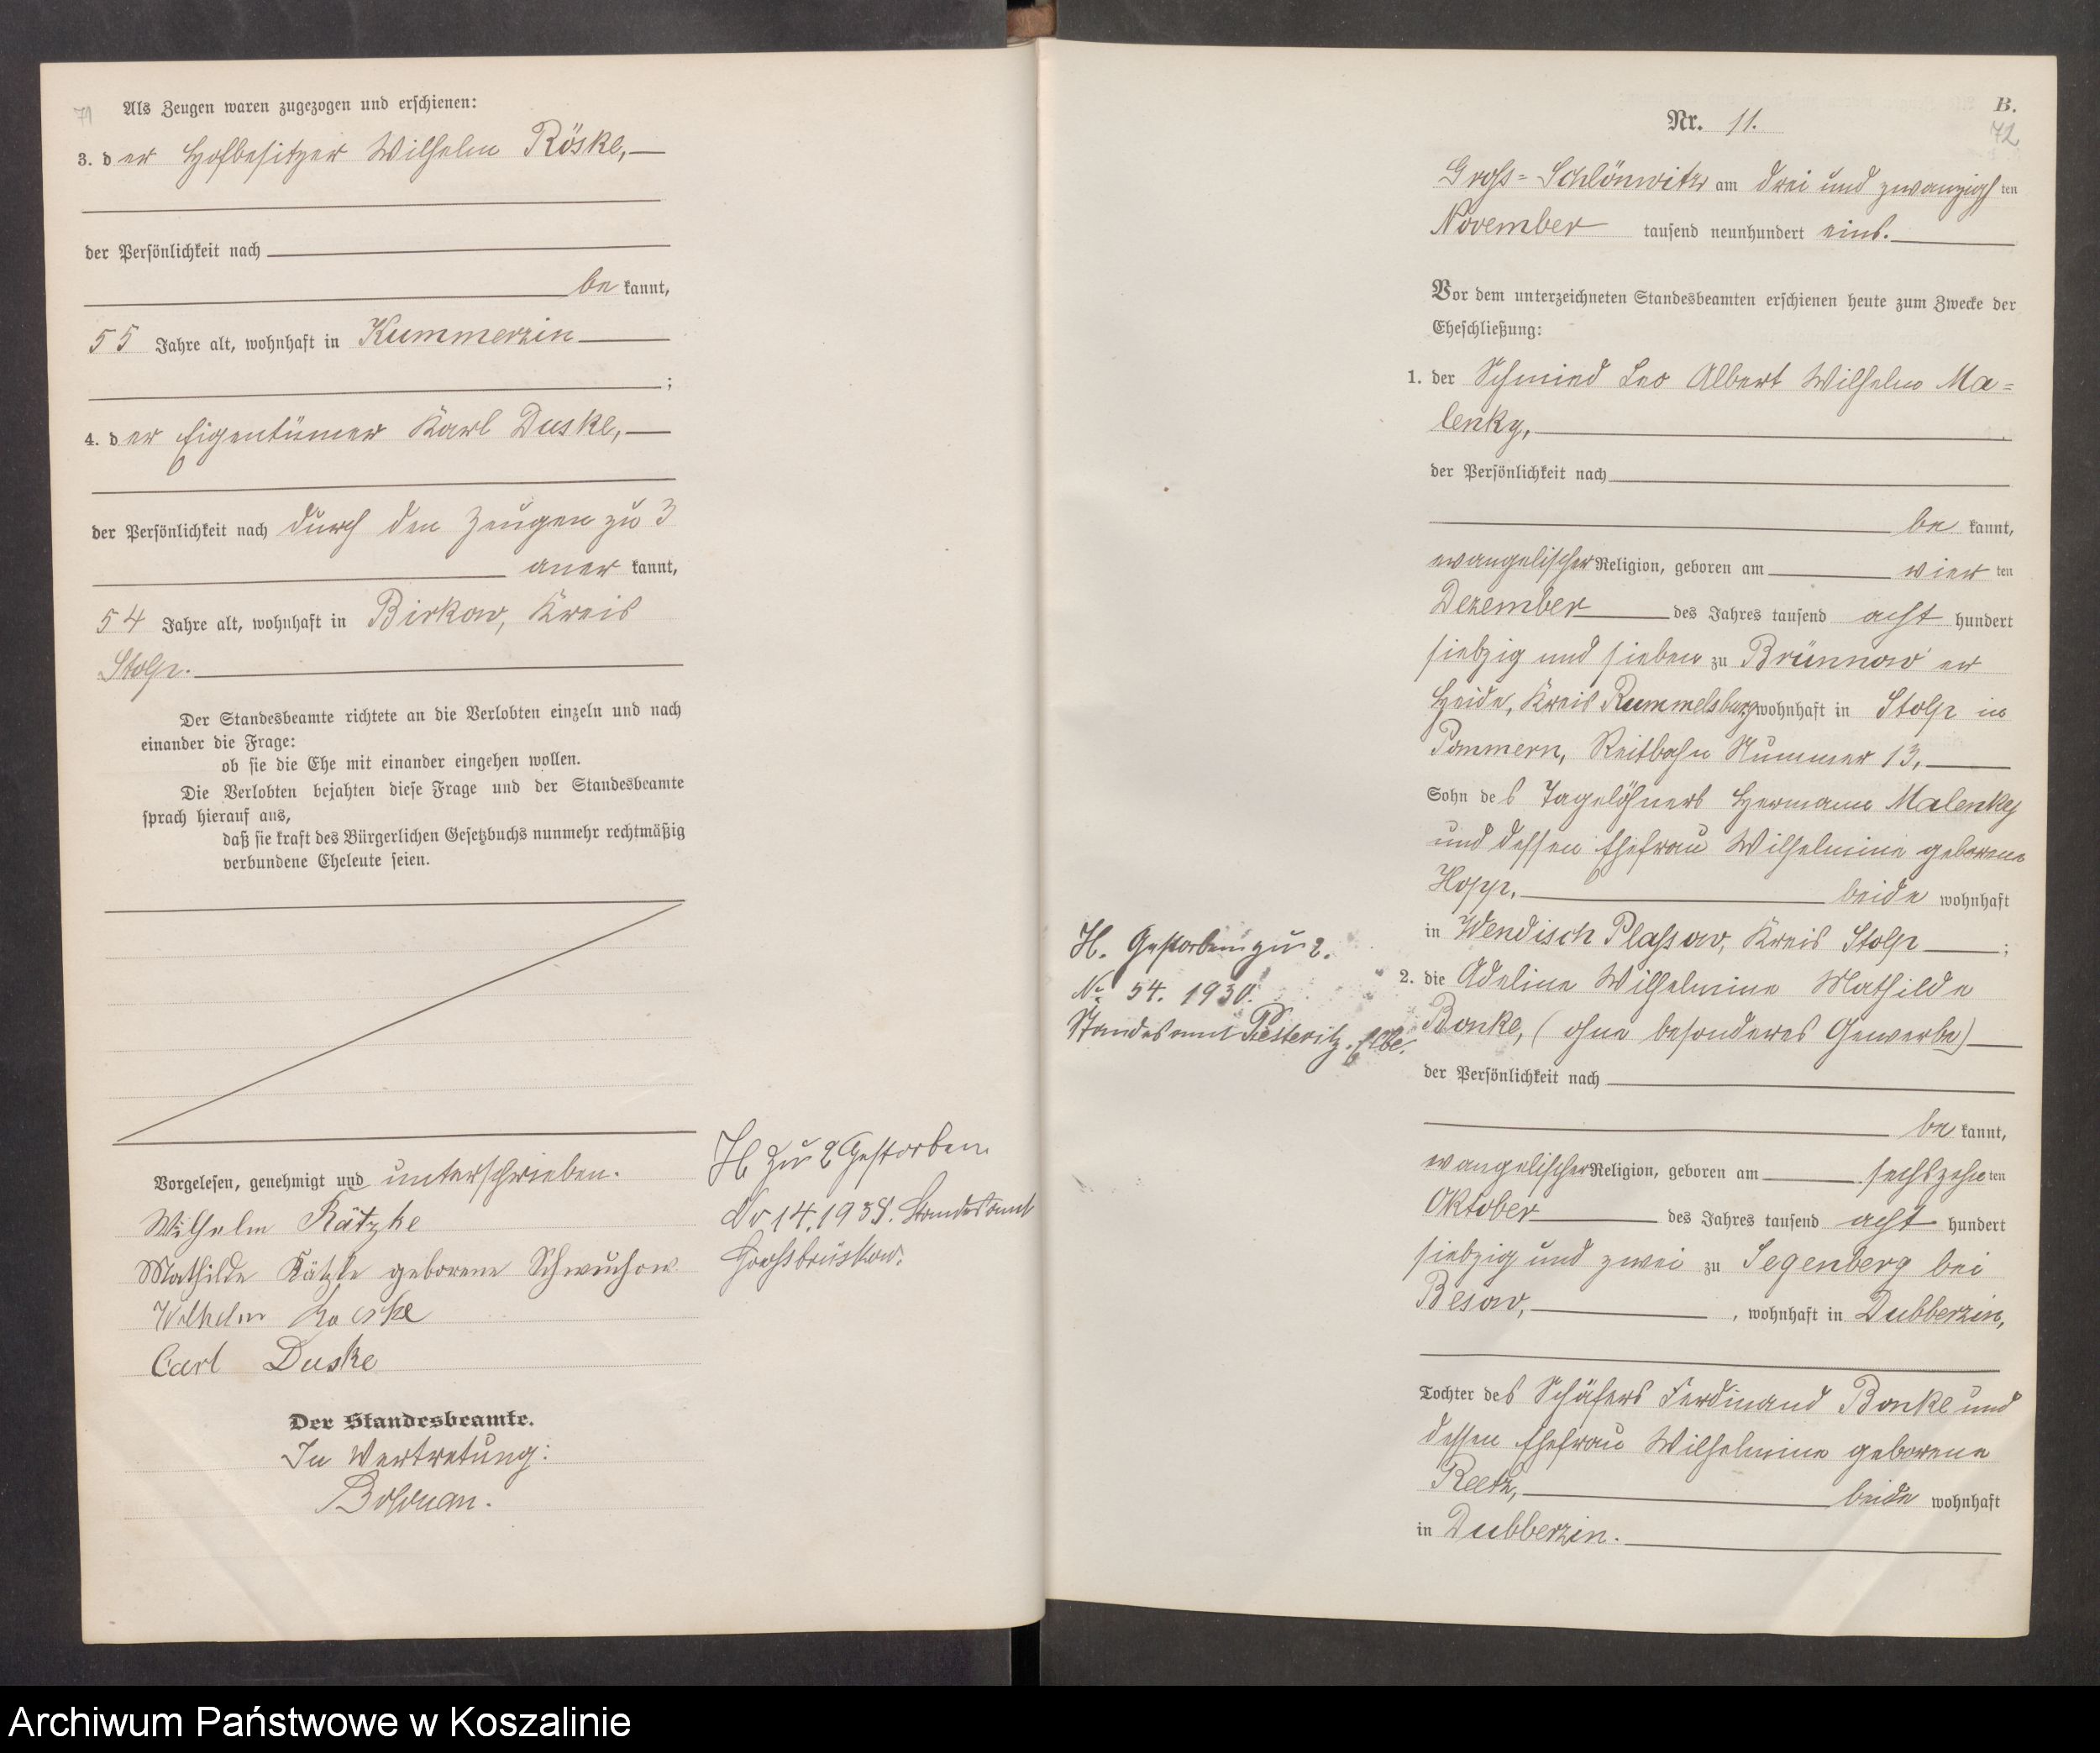 71
Als Zeugen waren zugezogen und erschienen:
3. der Hofbesitzer Wilhelm Röske,
der Persönlichkeit nach
be kannt,
55 Jahre alt, wohnhaft in Kummerzin
;
4. der Eigentümer Karl Duske,
der Persönlichkeit nach durch den Zeugen zu 3
aner kannt,
54 Jahre alt, wohnhaft in Birkow, Kreis
Stolp.
Der Standesbeamte richtete an die Verlobten einzeln und nach
einander die Frage:
ob sie die Ehe mit einander eingehen wollen.
Die Verlobten bejahten diese Frage und der Standesbeamte
sprach hierauf aus,
daß sie kraft des Bürgerlichen Gesetzbuchs nunmehr rechtmäßig
verbundene Eheleute seien.
Vorgelesen, genehmigt und unterschrieben.
Wilhelm Kätzke
Mathilde Kätzke geborene Schwuchow
Wilhelm Roeske
Carl Duske
Der Standesbeamte.
In Vertretung:
H. zu 2 Gestorben
Nr 14. 1938. Standesamt
Grossbrüskow.
B.
72
Nr. 11.
Gross=Schlönwitz am drei und zwanzigsten
November tausend neunhundert eins.
Vor dem unterzeichneten Standesbeamten erschienen heute zum Zwecke der
Eheschließung:
1. der Schmied Leo Albert Wilhelm Ma=
lenky,
der Persönlichkeit nach
be kannt,
evangelischer Religion, geboren am vier ten
Dezember des Jahres tausend acht hundert
siebzig und sieben zu Brünnow'er
Heide, Kreis Rummelsburg wohnhaft in Stolp in
Pommern, Reitbahn Nummer 13,
Sohn des Tagelöhners Hermann Malenky
und dessen Ehefrau Wilhelmine geborene
Hopp, beide wohnhaft
in Wendisch Plassow, Kreis Stolp ;
2. die Adeline Wilhelmine Mathilde
Bonke, (ohne besonderes Gewerbe)
der Persönlichkeit nach
be kannt,
evangelischer Religion, geboren am sechszehnten
Oktober des Jahres tausend acht hundert
siebzig und zwei zu Segenberg bei
Besow, , wohnhaft in Dubberzin,
Tochter des Schäfers Ferdinand Bonke und
dessen Ehefrau Wilhelmine geborene
Reetz, beide wohnhaft
in Dubberzin.
H. Gestorben zu 2.
Nr 54. 1930.
Standesamt Piesteritz. Elbe.
Archiwum Państwowe w Koszalinie